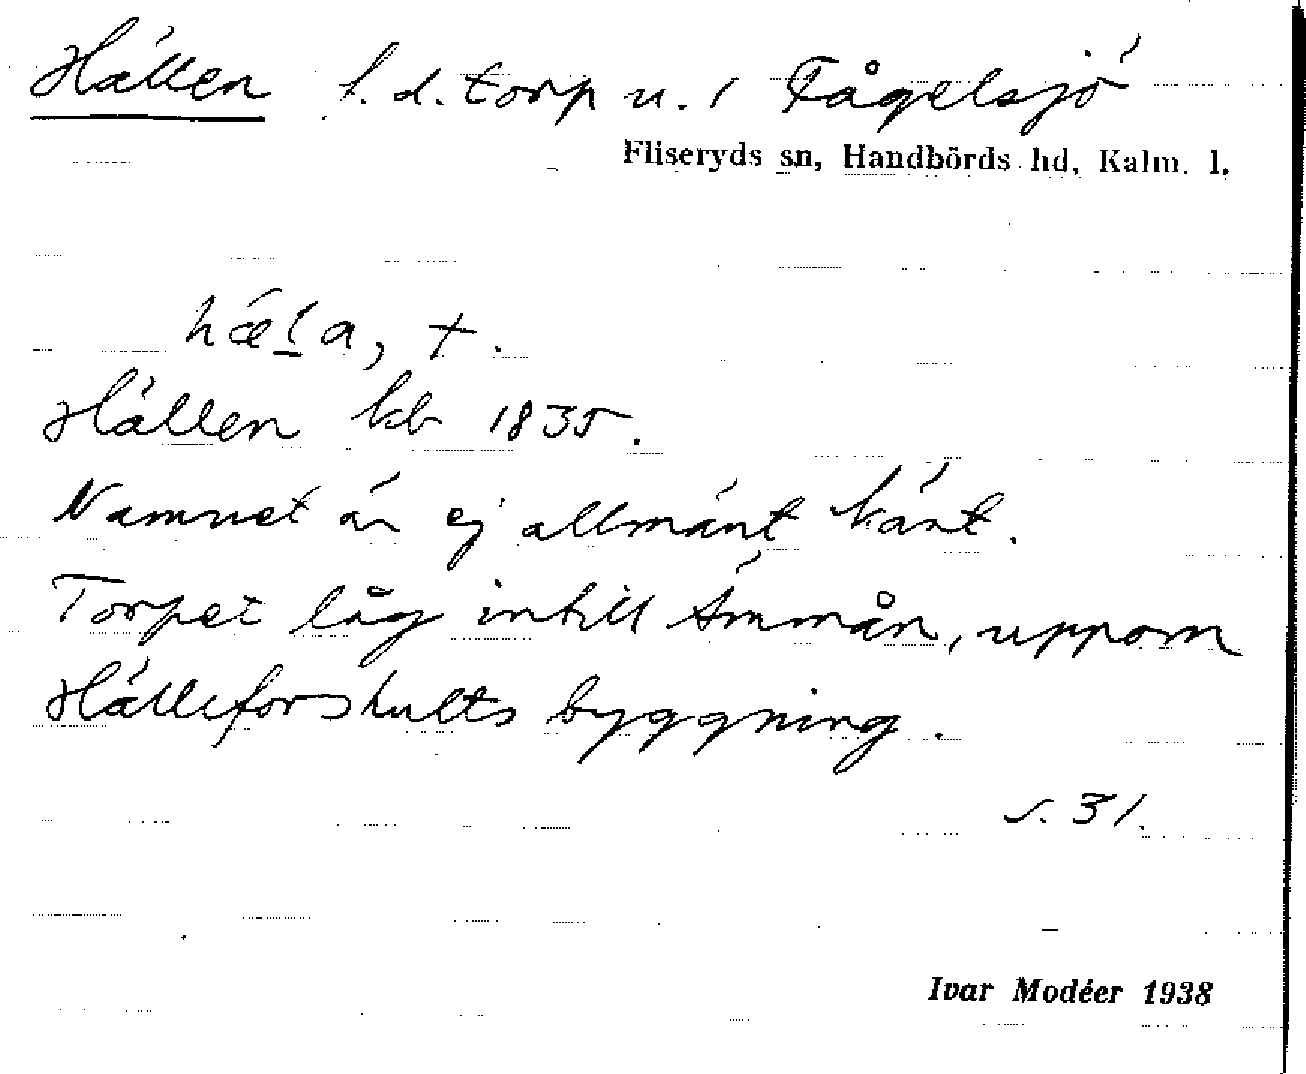 Hällen f. d. torp u. 1 Fågelsjö
Fliseryds sn, Handbörds hd, Kalm. l.
hǽḷa, +.
Hällen kb 1835.
Namnet är ej allmänt känt.
Torpet låg intill Ämmån, uppom
Hälleforshults byggning.
s. 31.
Ivar Modéer 1938